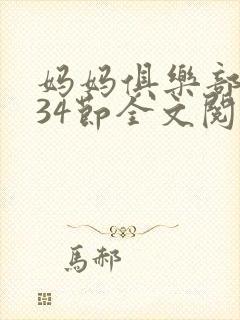 妈妈俱樂部
34節全文閱
馬郝